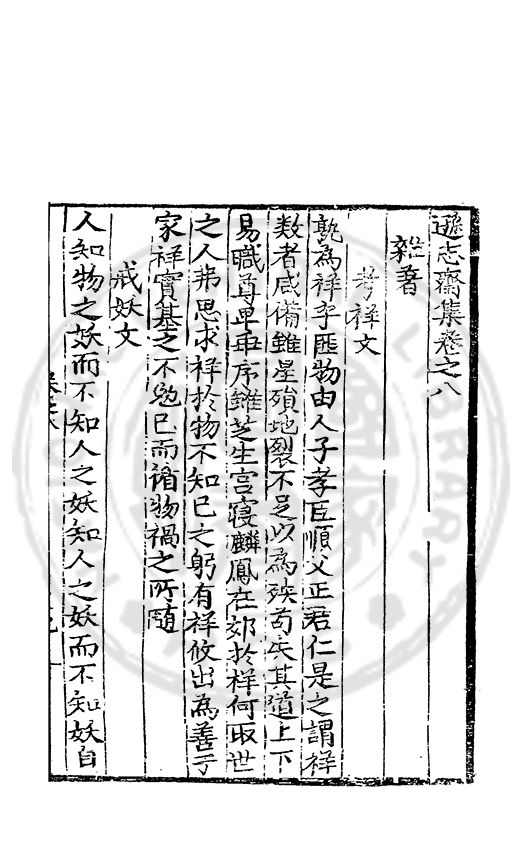 遜志齋集卷之八
雜著
考祥文
孰為祥乎匪物由人子孝臣順父正君仁是之謂祥
数者咸備雖星殞地裂不足以為殃苟失其道上下
易職尊卑乖序雖芝生宮寢麟鳳在郊於祥何取世
之人弗思求祥於物不知已之躬有祥攸出為善于
家祥實基之不勉已而諸物禍之所隨
戒妖文
人知物之妖而不知人之妖知人之妖而不知妖自